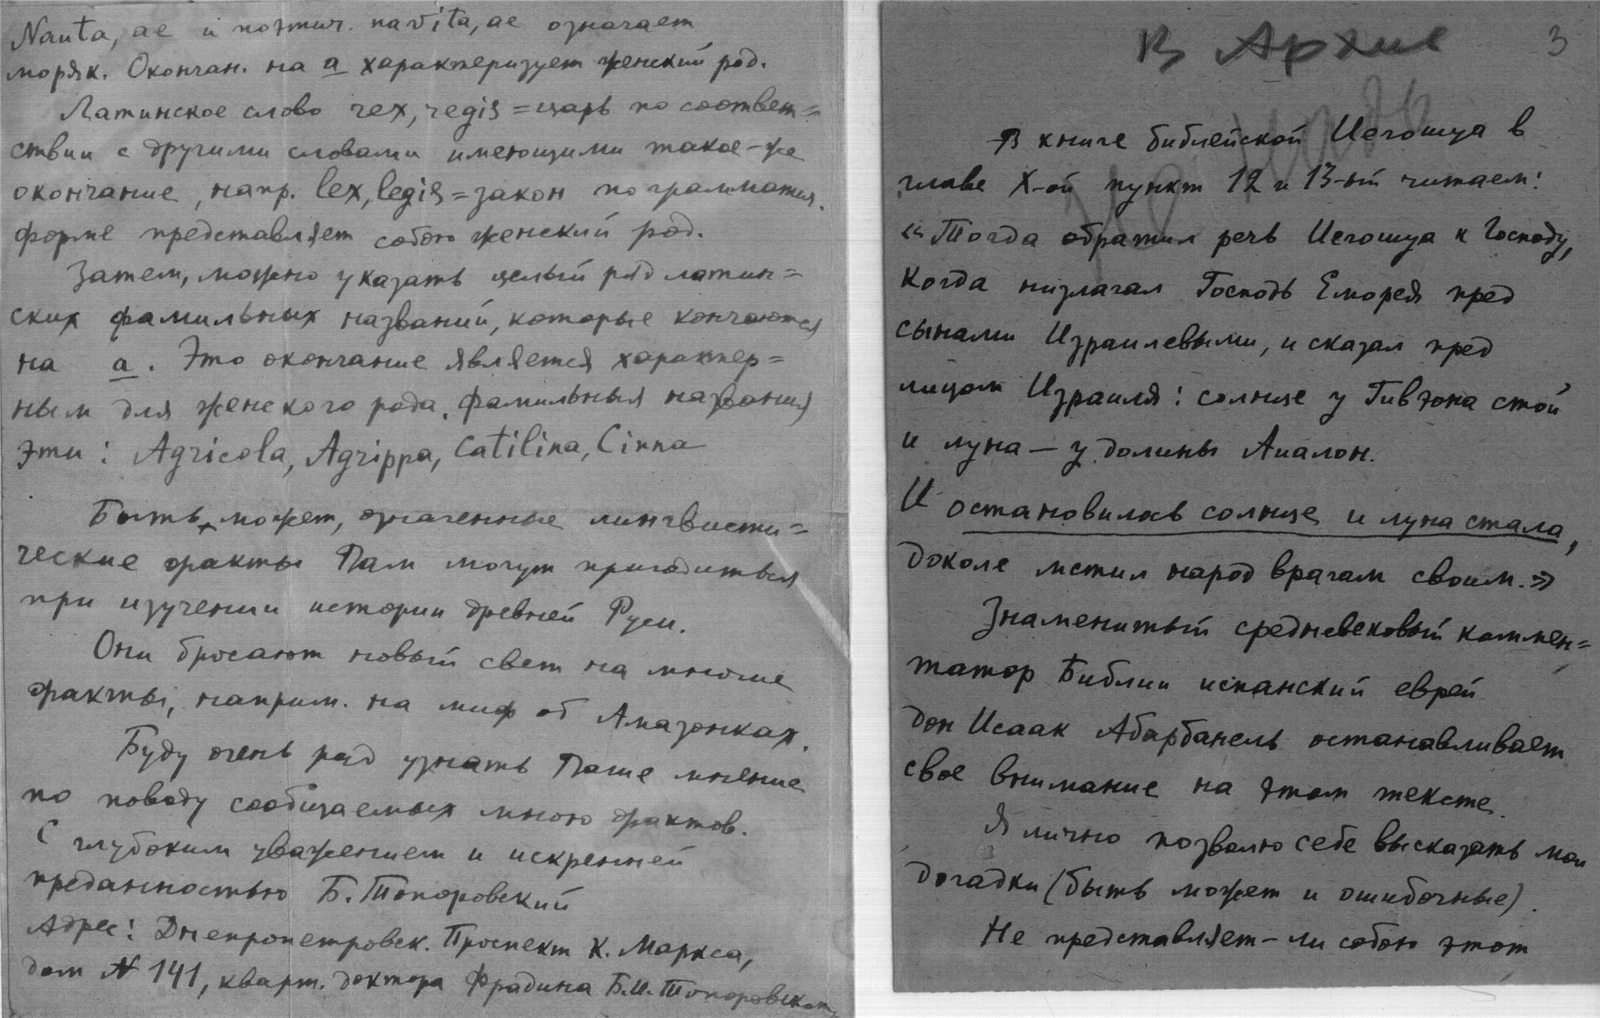 Nauta, ae и поэтич. navita, ae означает
моряк. Окончан. на а характеризует женский род.
Латинское слово rex, regis = царь по соответ=
ствии с другими словами имеющими такое-же
окончание, напр. lex, legis = закон по грамматич.
форме представляет собою женский род.
Затем, можно указать целый ряд латин=
ских фамильных названий, которые кончаются
на а. Это окончание является характер=
ным для женского рода. Фамильныя названия
эти: Agricola, Agrippa, Catilina, Cinna
Быть может, означенные лингвисти=
ческие факты Вам могут пригодиться
при изучении истории древней Руси.
Они бросают новый свет на многие
факты, наприм. на миф об Амазонках.
Буду очень рад узнать Ваше мнение
по поводу сообщаемых мною фактов.
С глубоким уважением и искренней
преданностью Б. Топоровский
Адрес: Днепропетровск. Проспект К. Маркса,
дом № 141, кварт. доктора Фрадина Б.И. Топоровском
В Архив
3
В книге библейской Иегошуа в
главе X-ой пункт 12 и 13-ый читаем:
«Тогда обратил речь Иегошуа к Господу,
когда низлагал Господь Еморея пред
сынами Израилевыми, и сказал пред
лицом Израиля: солнце у Гивэона стой
и луна — у долины Аиалон.
И остановилось солнце и луна стала,
доколе мстил народ врагам своим.»
Знаменитый средневековый коммен=
татор Библии испанский еврей
дон Исаак Абарбанель останавливает
свое внимание на этом тексте.
Я лично позволю себе высказать мои
догадки (быть может и ошибочные).
Не представляет-ли собою этот